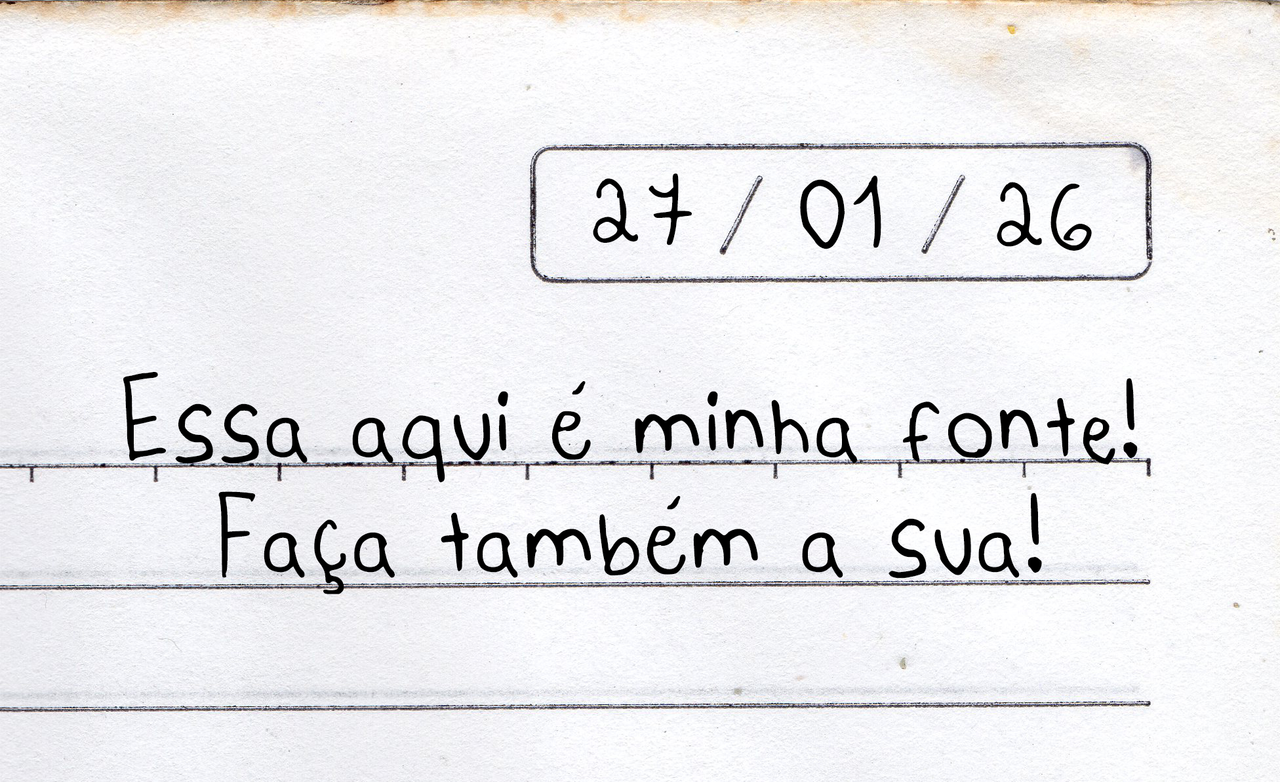 27 / 01 / 26
Essa aqui é minha fonte!
Faça também a sua!